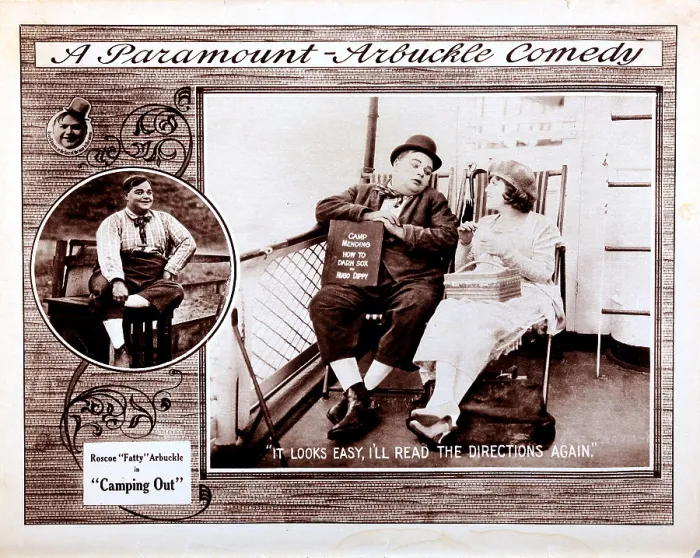 A Paramount-Arbuckle Comedy
CAMP
MENDING
HOW TO
DARN SOX
BY
HUGO DIPPY
"IT LOOKS EASY, I'LL READ THE DIRECTIONS AGAIN."
Roscoe "Fatty" Arbuckle
in
"Camping Out"